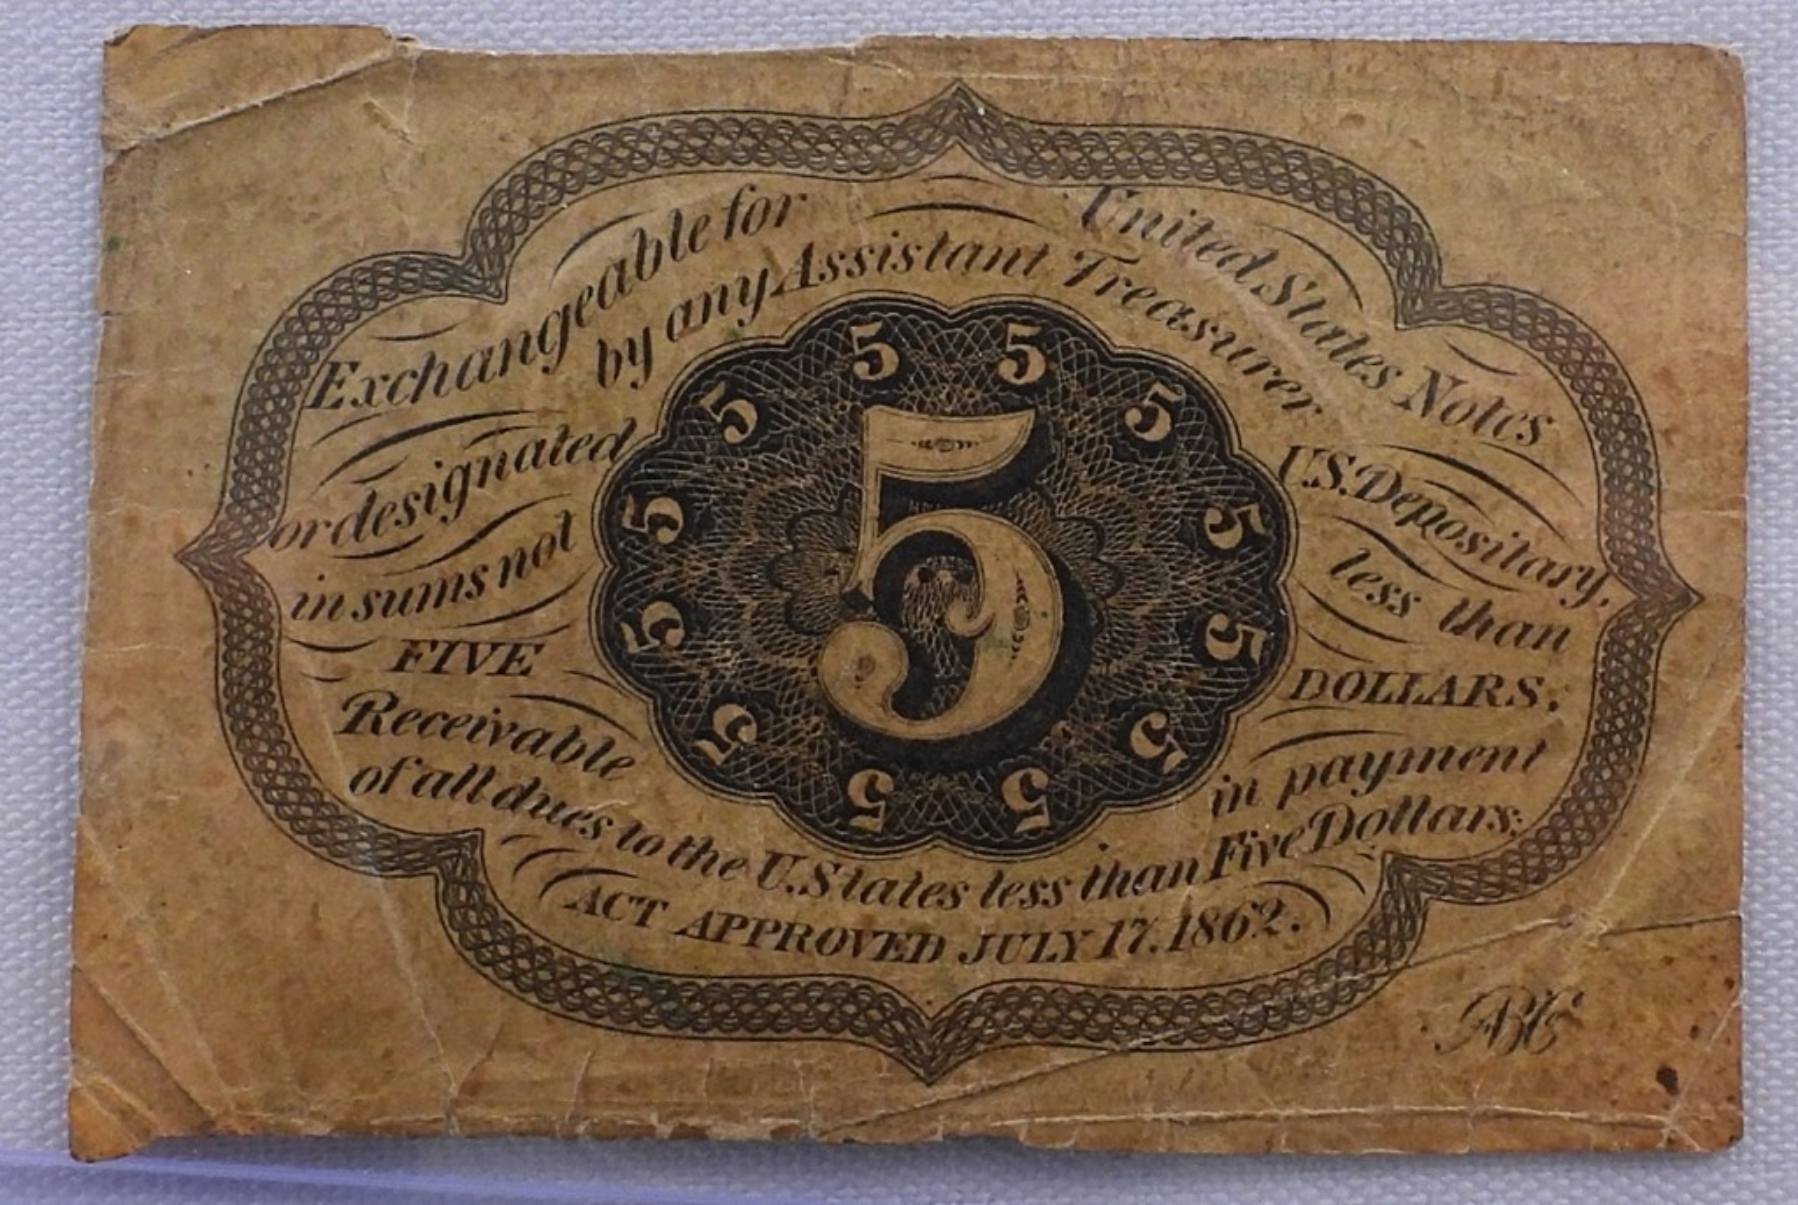 Exchangeable for United States Notes
by any Assistant Treasurer
or designated U.S. Depositary,
in sums not less than
FIVE DOLLARS.
Receivable in payment
of all dues to the U. States less than Five Dollars.
ACT APPROVED JULY 17. 1862.
5
5
5
5
5
5
5
5
5
5
5
5
5
ABC